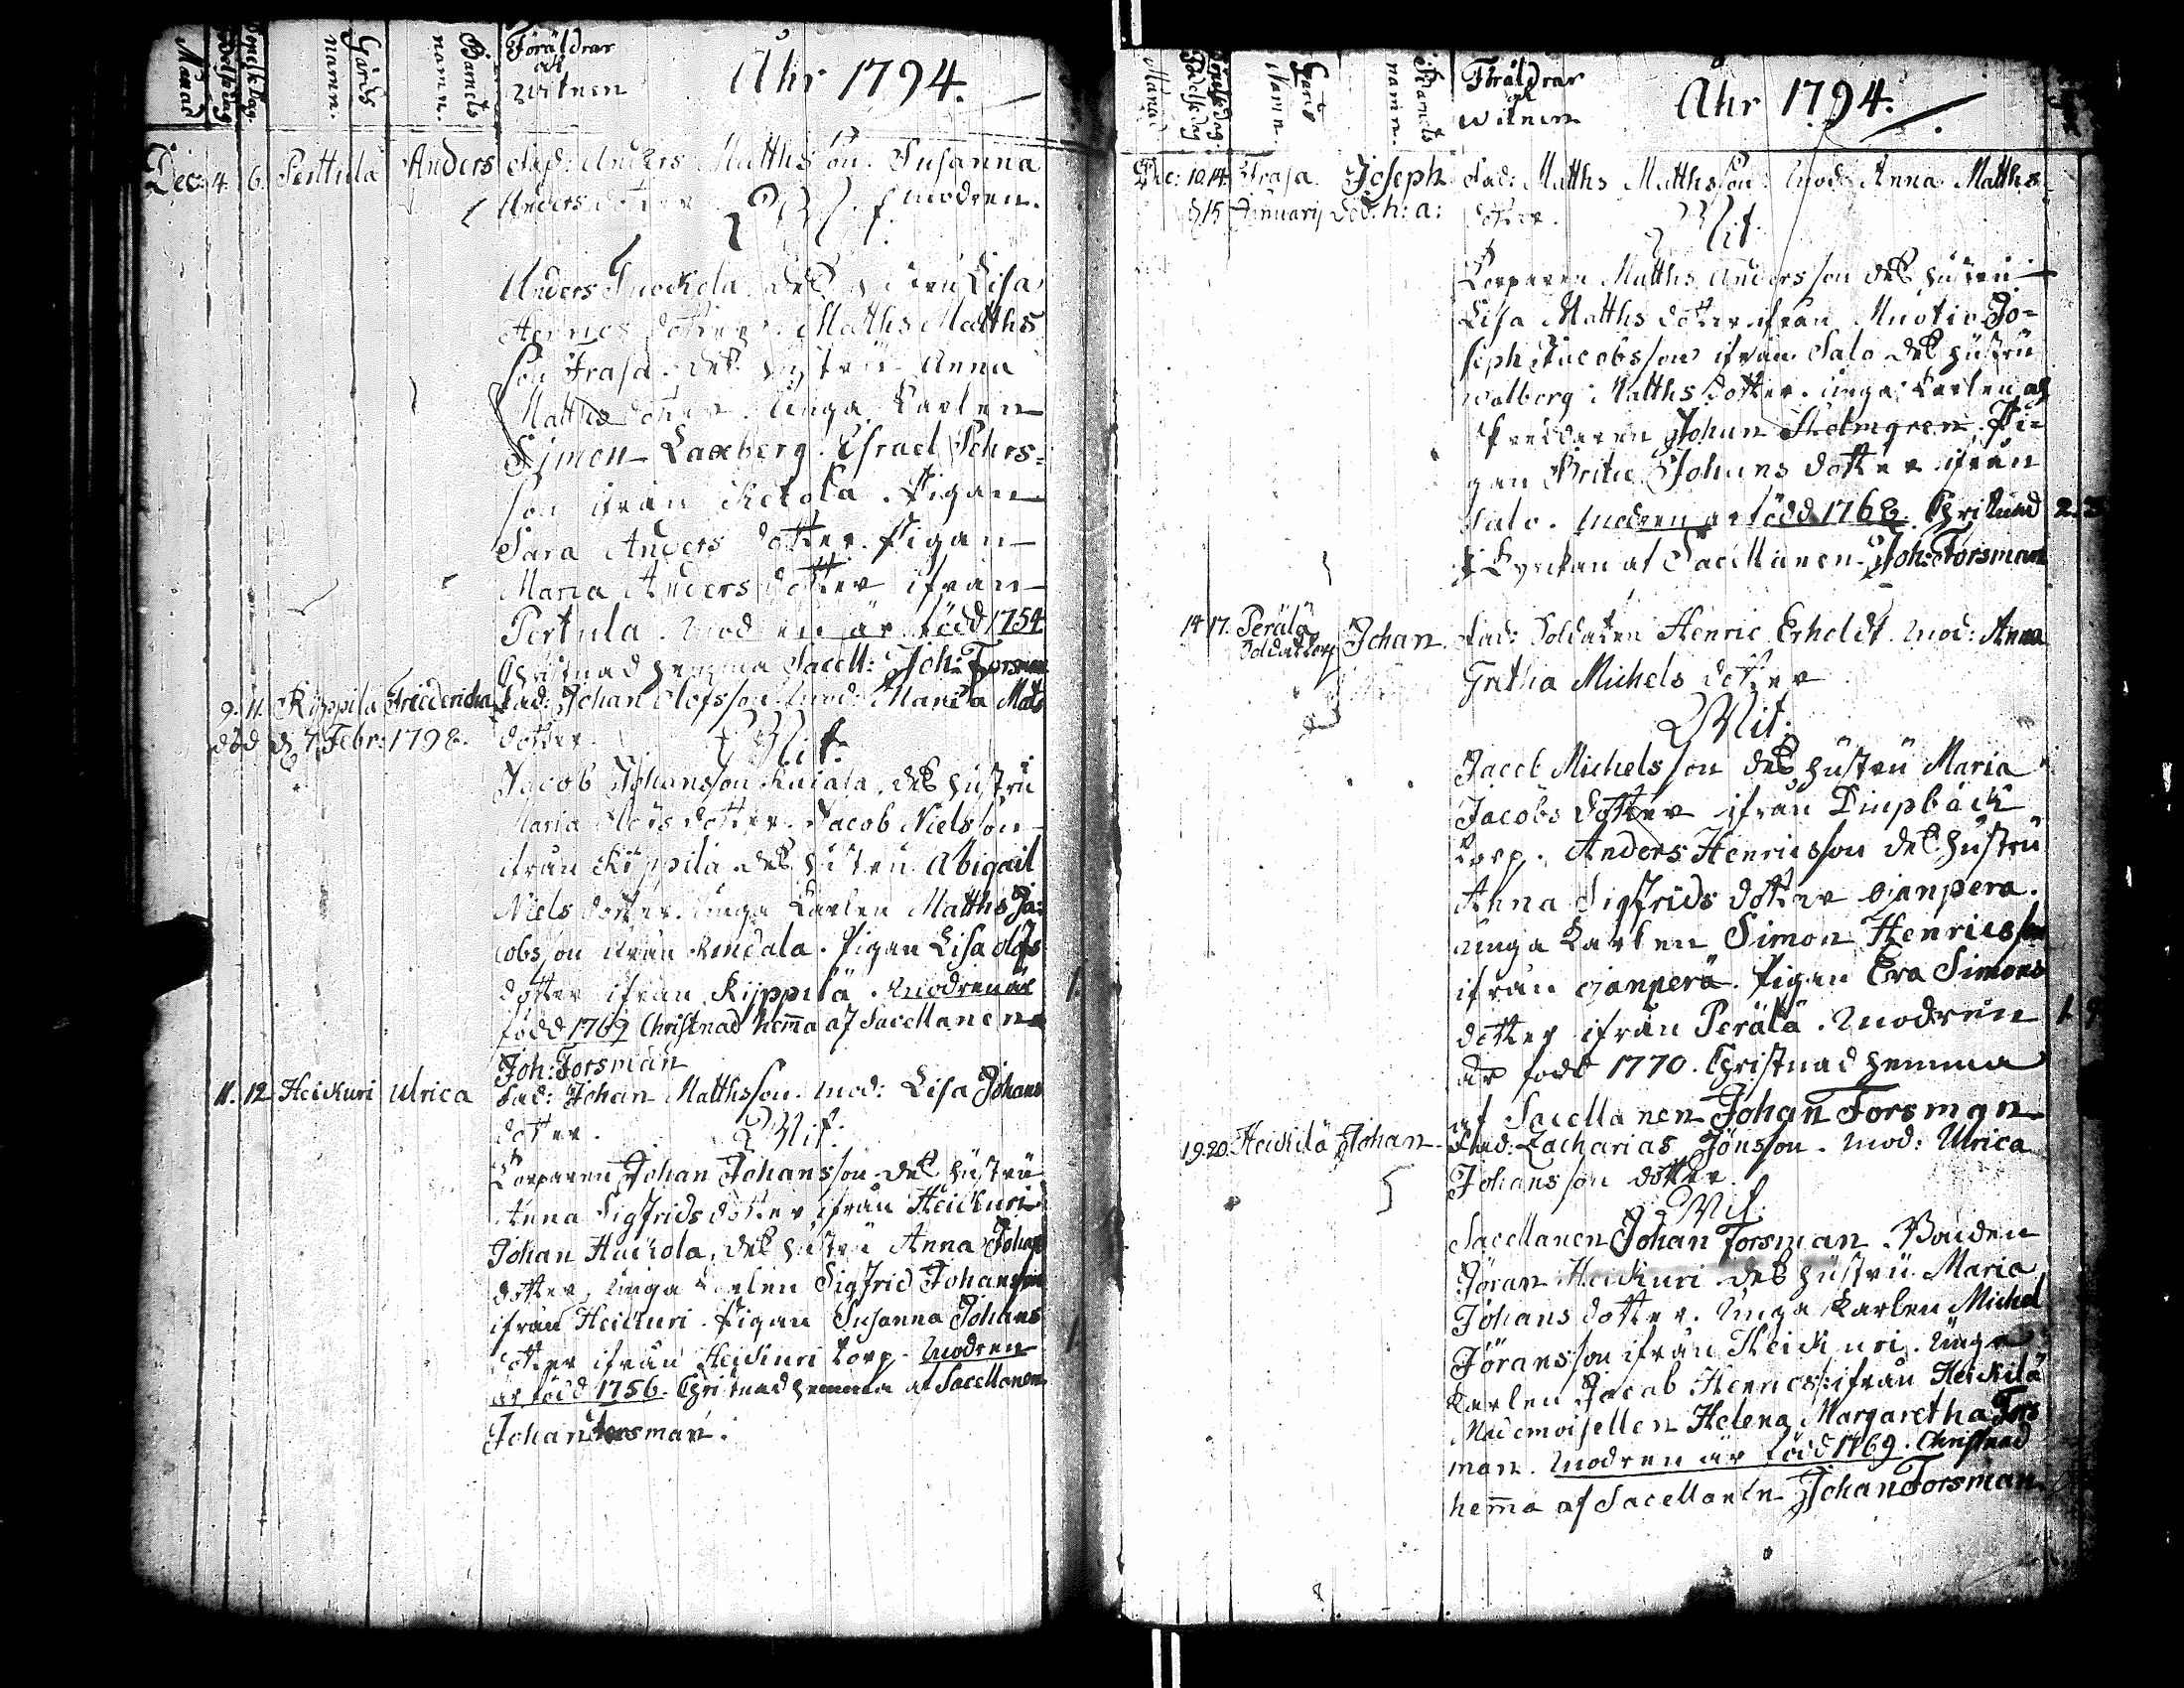 Månad
Födelsedag
Christ. dag.
Gårds namn.
Barnets namn.
Föräldrar och witnen
Åhr 1794.
Dec: 4. 6. Perttula Anders Fad: Anders Matthsson. Susanna
Andersdotter modren.
Wit.
Anders Knockela des hustru Lisa
Henrics dotter. Matths Matths
son Frasa. des hustru Anna
Matthsdotter. Unga Karlen
Simon Laxberg. Esrael Pehrs=
son ifrån Ketola. Pigan
Sara Anders dotter. Pigan
Maria Anders dotter ifrån
Pertula. Modren är född 1754
Christnad hemma Sacell: Joh: Forsman
9. 11. Kyppilä Friedericha Fad: Johan Olofsson. Mod: Maria Mats
död d. 7. Febr: 1798. dotter. Wit.
Jacob Johansson Kaiala, des hustru
Maria dotter. Jacob Nielsson
ifrån Kyppilä des hustru Abigail
Niels dotter. Unga Karlen Matths Ja=
cobsson ifrån Rendala. Pigan Lisa Olofs
dotter ifrån Kyppilä. Modren är
född 1769 Christnad hem̄a af Sacellanen
Joh: Forsman
11. 12. Heickuri Ulrica Fad: Johan Matthsson. Mod: Lisa Johans
dotter. Wit:
Torparen Johan Johansson des hustru
Anna Sigfrids dotter ifrån Heickuri
Johan Huckola, des hustru Anna Johans
dotter, Unga Karlen Sigfrid Johansson
ifrån Heickuri. Pigan Susanna Johans
dotter ifrån Heickuri torp. Modren
är född 1756. Christnad hemma af Sacellanen
Johan Forsman.
Månad
Födelsedag
Gårds namn.
Barnets namn.
Föräldrar och witnen
Åhr 1794.
Dec: 10. 14. Frasa. Joseph Fad: Matths Matthsson. Mod: Anna Matths
d 15 Januarij död. h: a: dotter. Wit.
Torparen Matths Andersson des hustru
Lisa Matths dotter ifrån Muotio Jo=
seph Jacobsson ifrån Salo des hustru
Walborg Matths dotter. Unga Karlen
Johan Holmgren. Pi=
gan Brita Johans dotter ifrån
Salo. Modren är född 1768. Christnad
i Kyrckan af Sacellanen Joh: Forsman
14 17. Perälä Soldattorp Johan. Fad: Soldaten Henric Erholdt. Mod: Anna
Gretha Michels dotter
Wit.
Jacob Michelsson des hustru Maria
Jacobs dotter ifrån Diupbäck
torp. Anders Henricsson des hustru
Anna Sigfrids dotter Ojanpera.
Unga Karlen Simon Henricsson
ifrån Ojanperä. Pigan Eva Simons
dotter ifrån Perälä. Modren
är född 1770. Christnad hemma
af Sacellanen Johan Forsman
19. 20. Heickilä Johan Fad: Zacharias Jönsson. Mod: Ulrica
Johansson dotter.
Wit.
Sacellanen Johan Forsman. Bonden
Jöran Heickuri des hustru Maria
Johans dotter. Unga Karlen Michel
Jöransson ifrån Heickuri. Unga
Karlen Jacob Henricss: ifrån Heickilä
Mademoisellen Helena Margaretha Fors
man. Modren är född 1769. Christnad
hem̄a af Sacellanen Johan Forsman